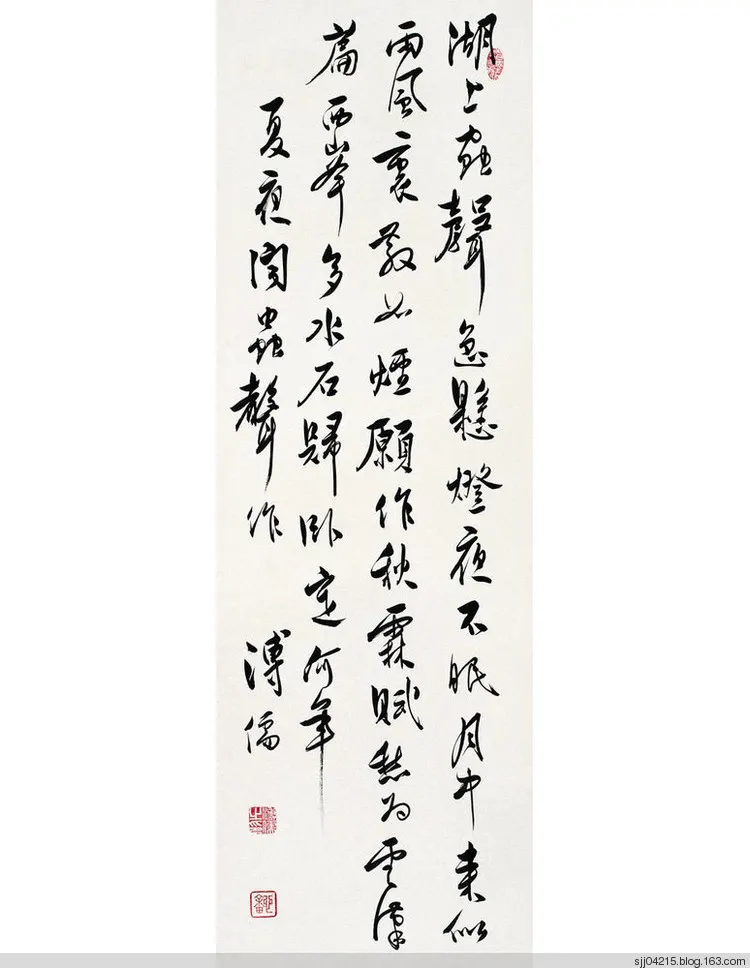 湖上蟲聲急懸燈夜不眠月中來似
雨風裏散如煙願作秋霖賦愁為雲漢
篇西山峯多水石歸卧定何年
夏夜聞蟲聲作
溥儒
sjj04215.blog.163.com